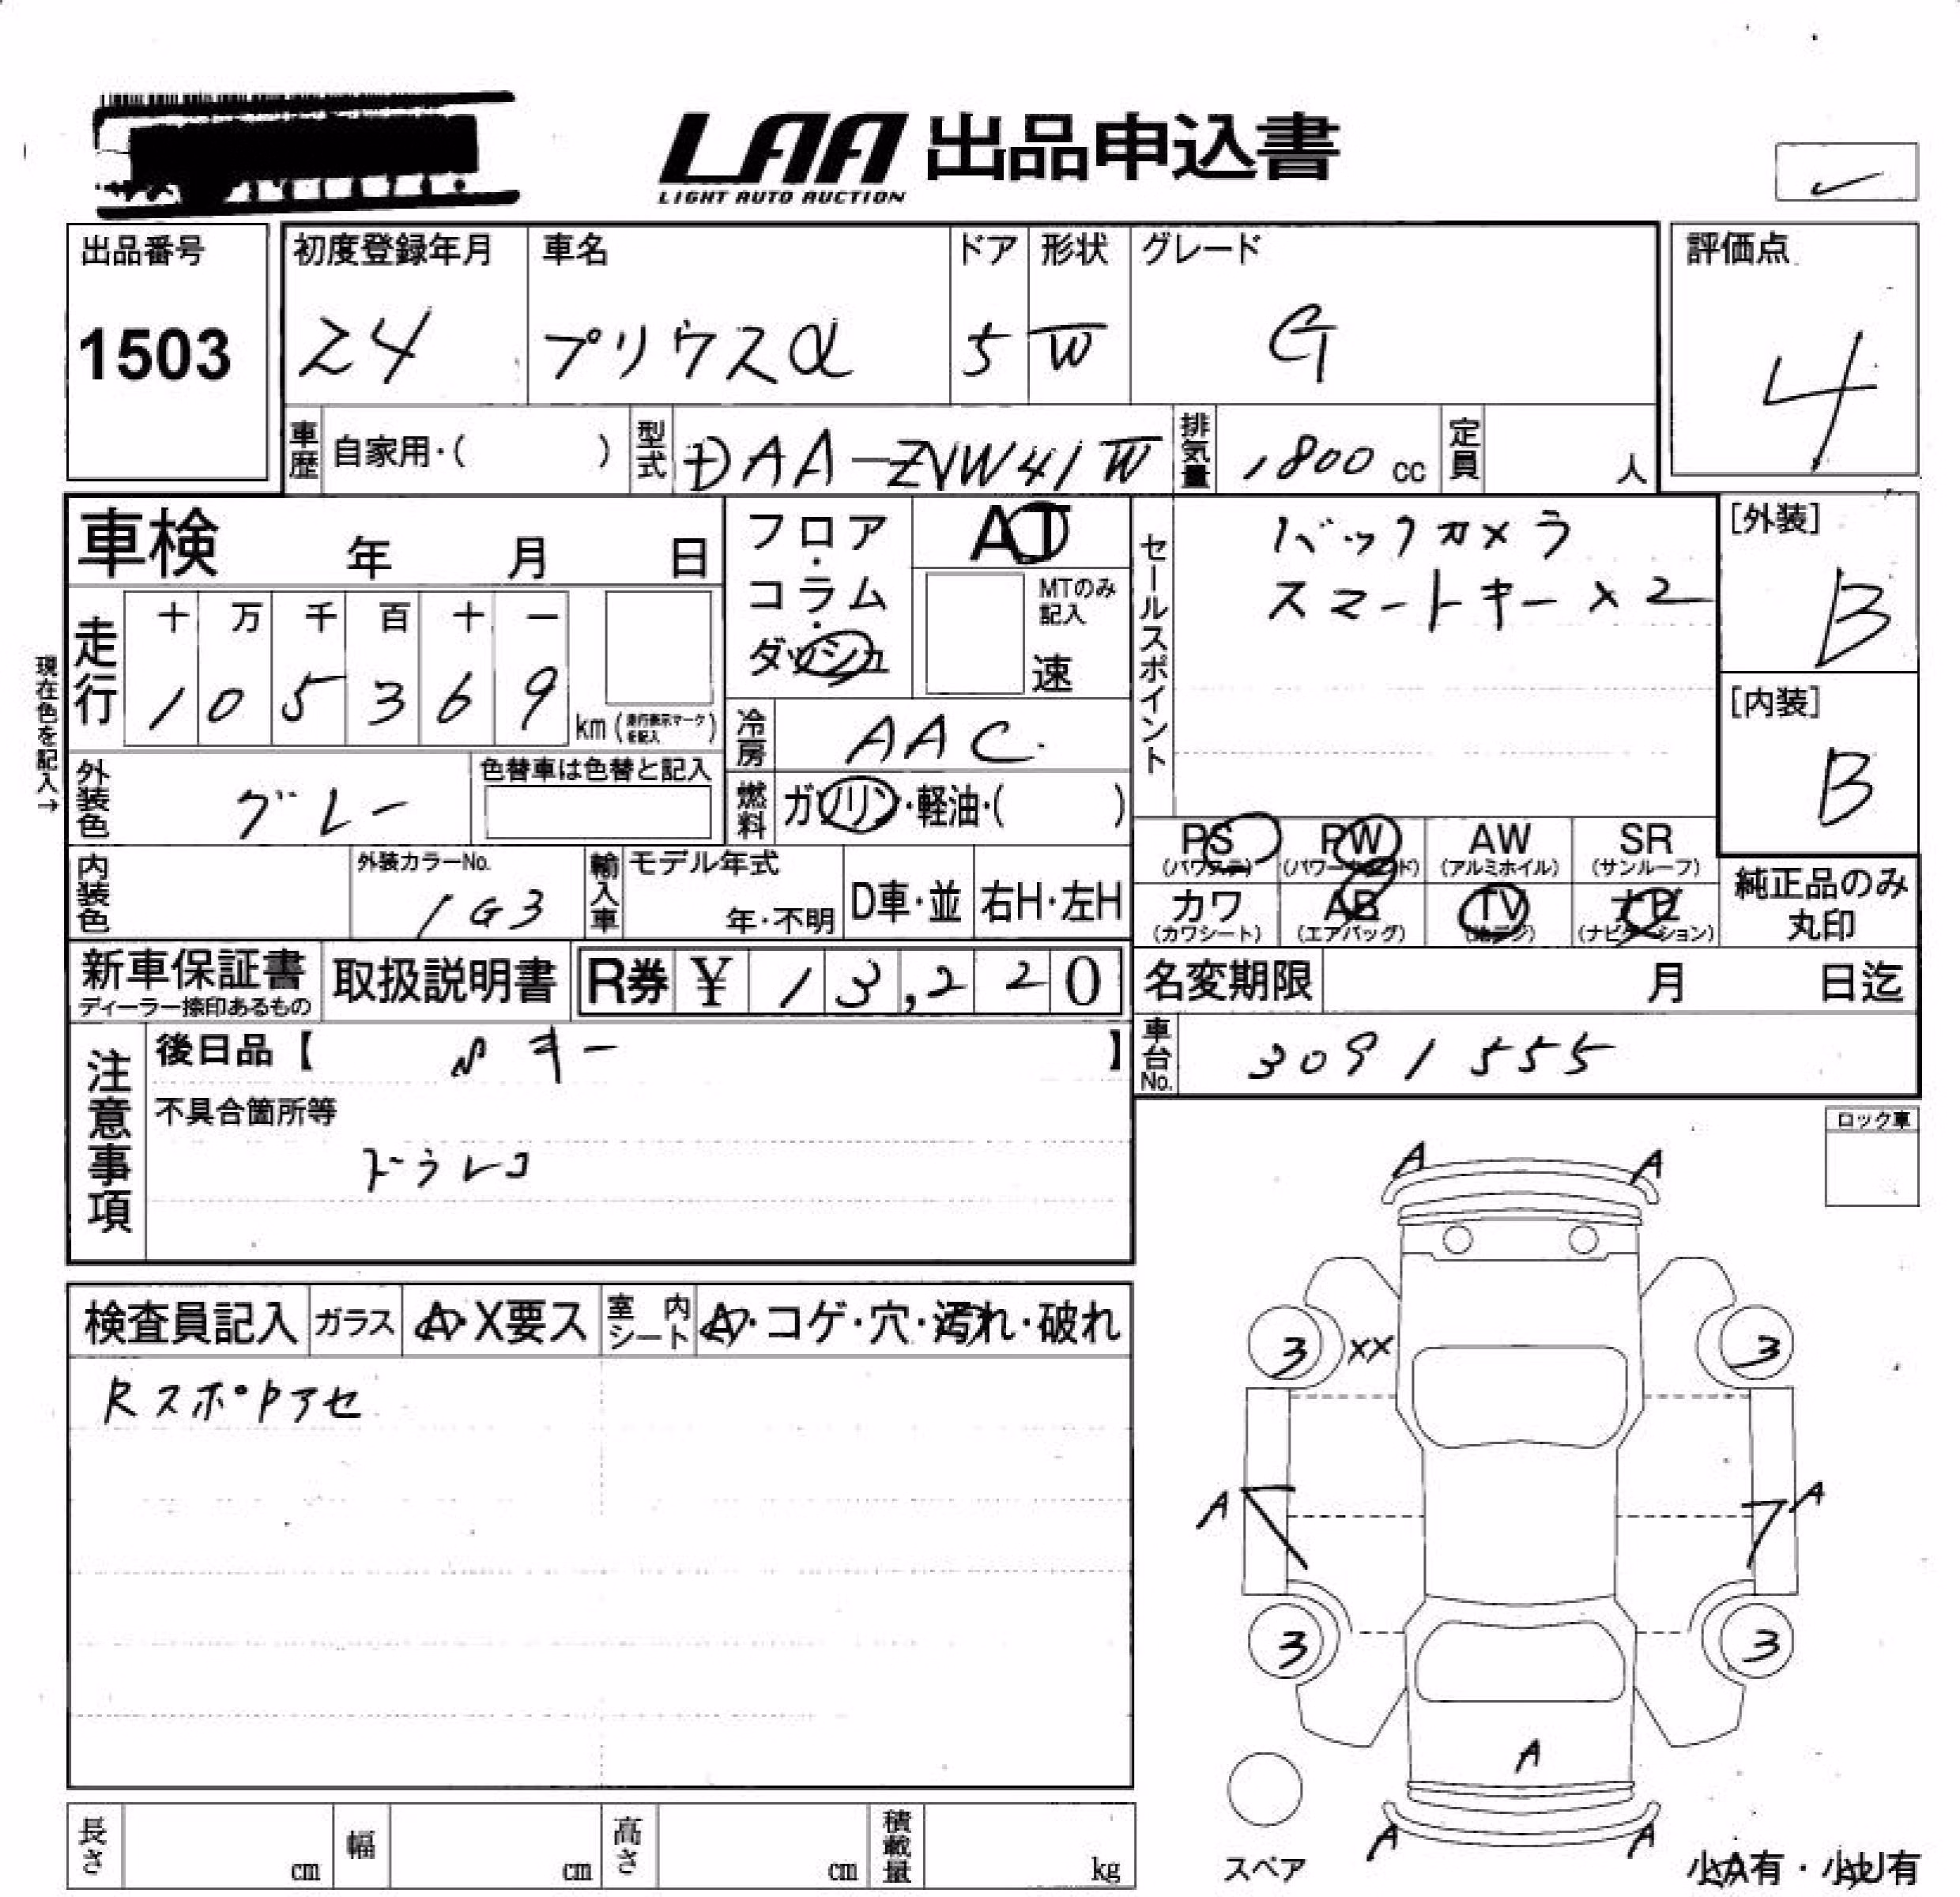 LAA 出品申込書
LIGHT AUTO AUCTION
出品番号
1503
初度登録年月 車名 ドア 形状 グレード
24 プリウスα 5 W G
評価点
4
車歴 自家用・( ) 型式 DAA-ZVW41W 排気量 1800 cc 定員 人
車検 年 月 日
フロア・コラム・ダッシュ
AT
MTのみ記入
速
セールスポイント
バックカメラ
スマートキー×2
[外装]
B
[内装]
B
現在色を記入→
走行
十 万 千 百 十 一
1 0 5 3 6 9 km (走行表示マークを記入)
冷房 AAC
外装色 グレー
色替車は色替と記入
燃料 ガソリン・軽油・( )
PS PW AW SR
(パワステ) (パワーウインド) (アルミホイル) (サンルーフ)
カワ AB TV ナビ
(カワシート) (エアバッグ) (地デジ) (ナビゲーション)
純正品のみ
丸印
内装色
外装カラーNo.
1G3
輸入車 モデル年式
年・不明 D車・並 右H・左H
新車保証書 取扱説明書 R券 ¥ 13,220
ディーラー捺印あるもの
名変期限 月 日迄
車台No. 3091555
注意事項
後日品【 キー 】
不具合箇所等
ドラレコ
ロック車
検査員記入 ガラス A・X要ス 室内シート A・コゲ・穴・汚れ・破れ
A A
3 XX 3
A A
3 3
A
A A
スペア
小A有・小U有
長さ cm 幅 cm 高さ cm 積載量 kg